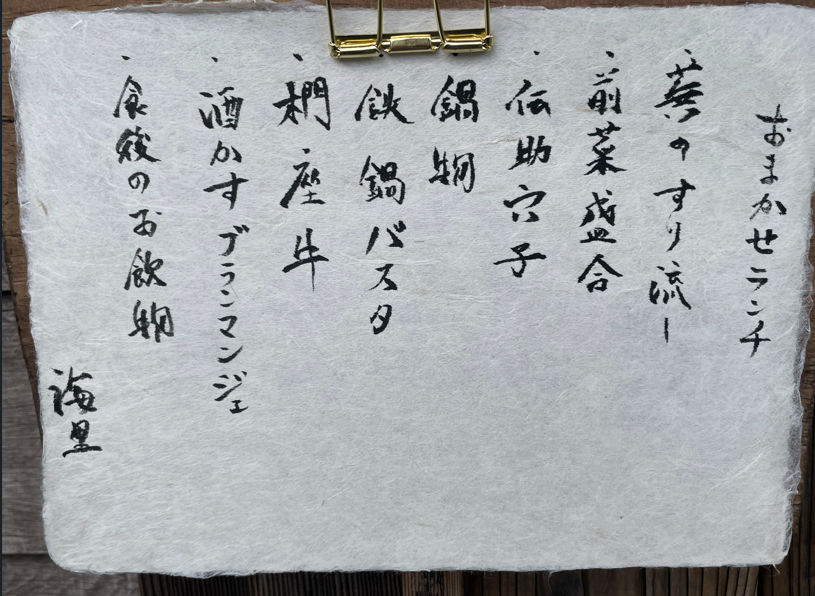 おまかせランチ
・蕪のすり流し
・前菜盛合
・伝助穴子
・鍋物
鉄鍋パスタ
・椚座牛
・酒かすブランマンジェ
・食後のお飲物
海里